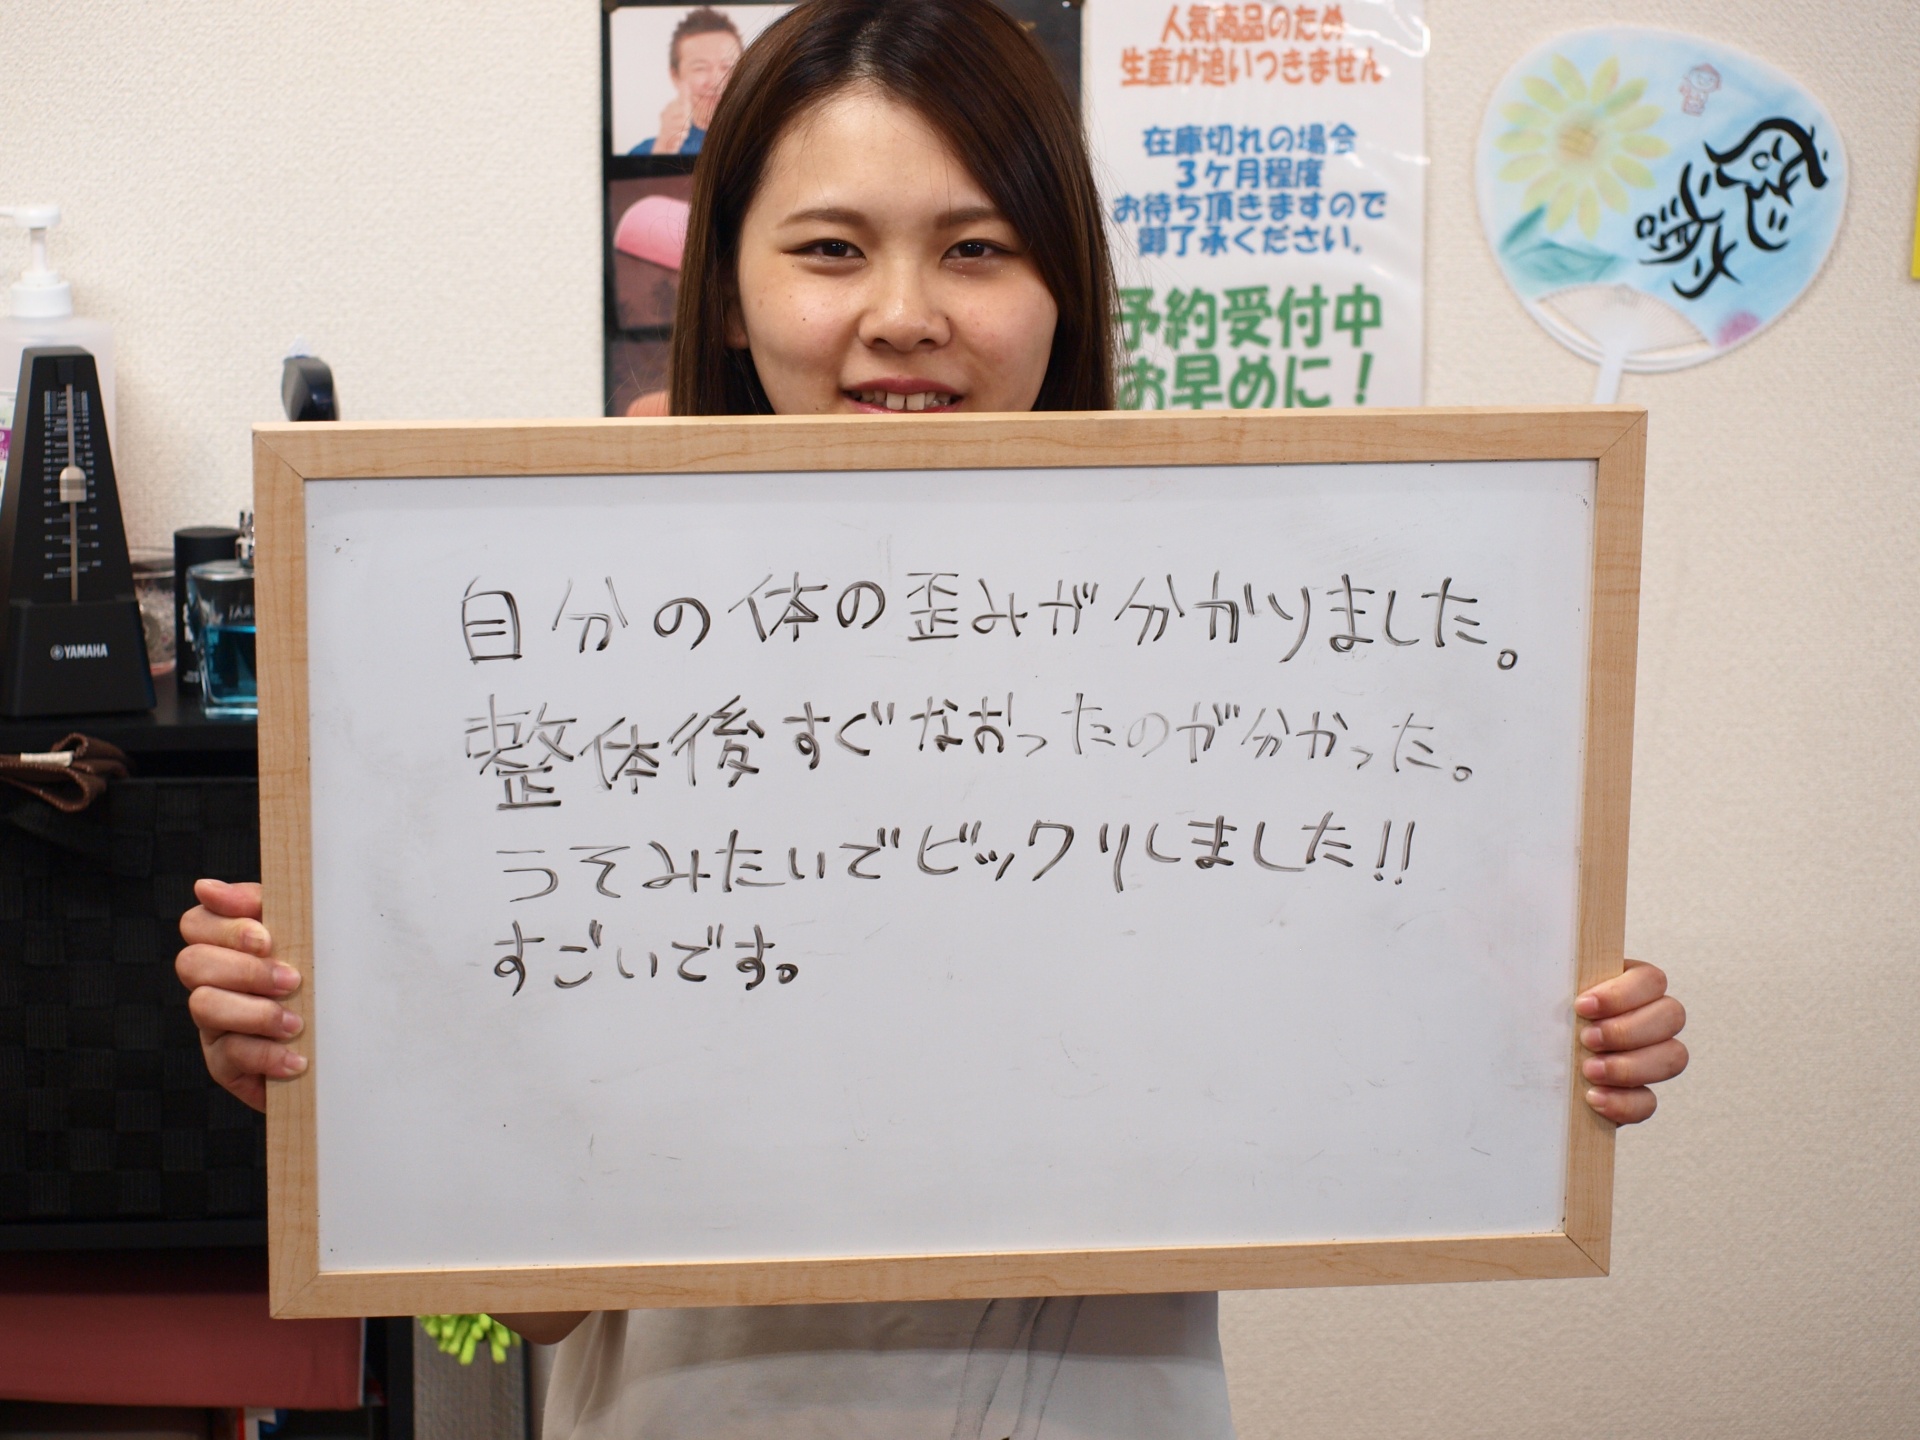 人気商品のため
生産が追いつきません
在庫切れの場合
3ヶ月程度
お待ち頂きますので
御了承ください.
予約受付中
お早めに!
YAMAHA
自分の体の歪みが分かりました。
整体後すぐなおったのが分かった。
うそみたいでビックリしました!!
すごいです。